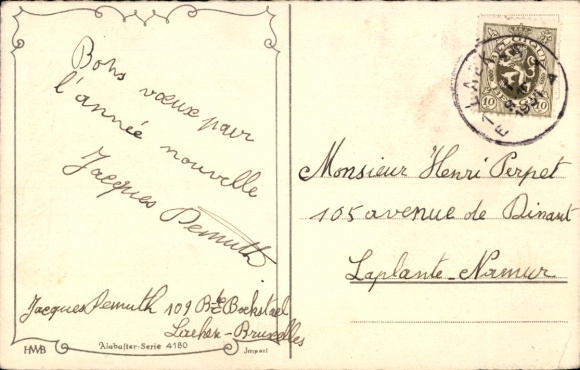 Bons vœux pour
l'année nouvelle
Jacques Demuth
Jacques Demuth 109 Bd Bockstael
Laeken-Bruxelles
HWB
Alabaster-Serie 4180
Import
10 10
Monsieur Henri Perpet
105 avenue de Dinant
Laplante-Namur